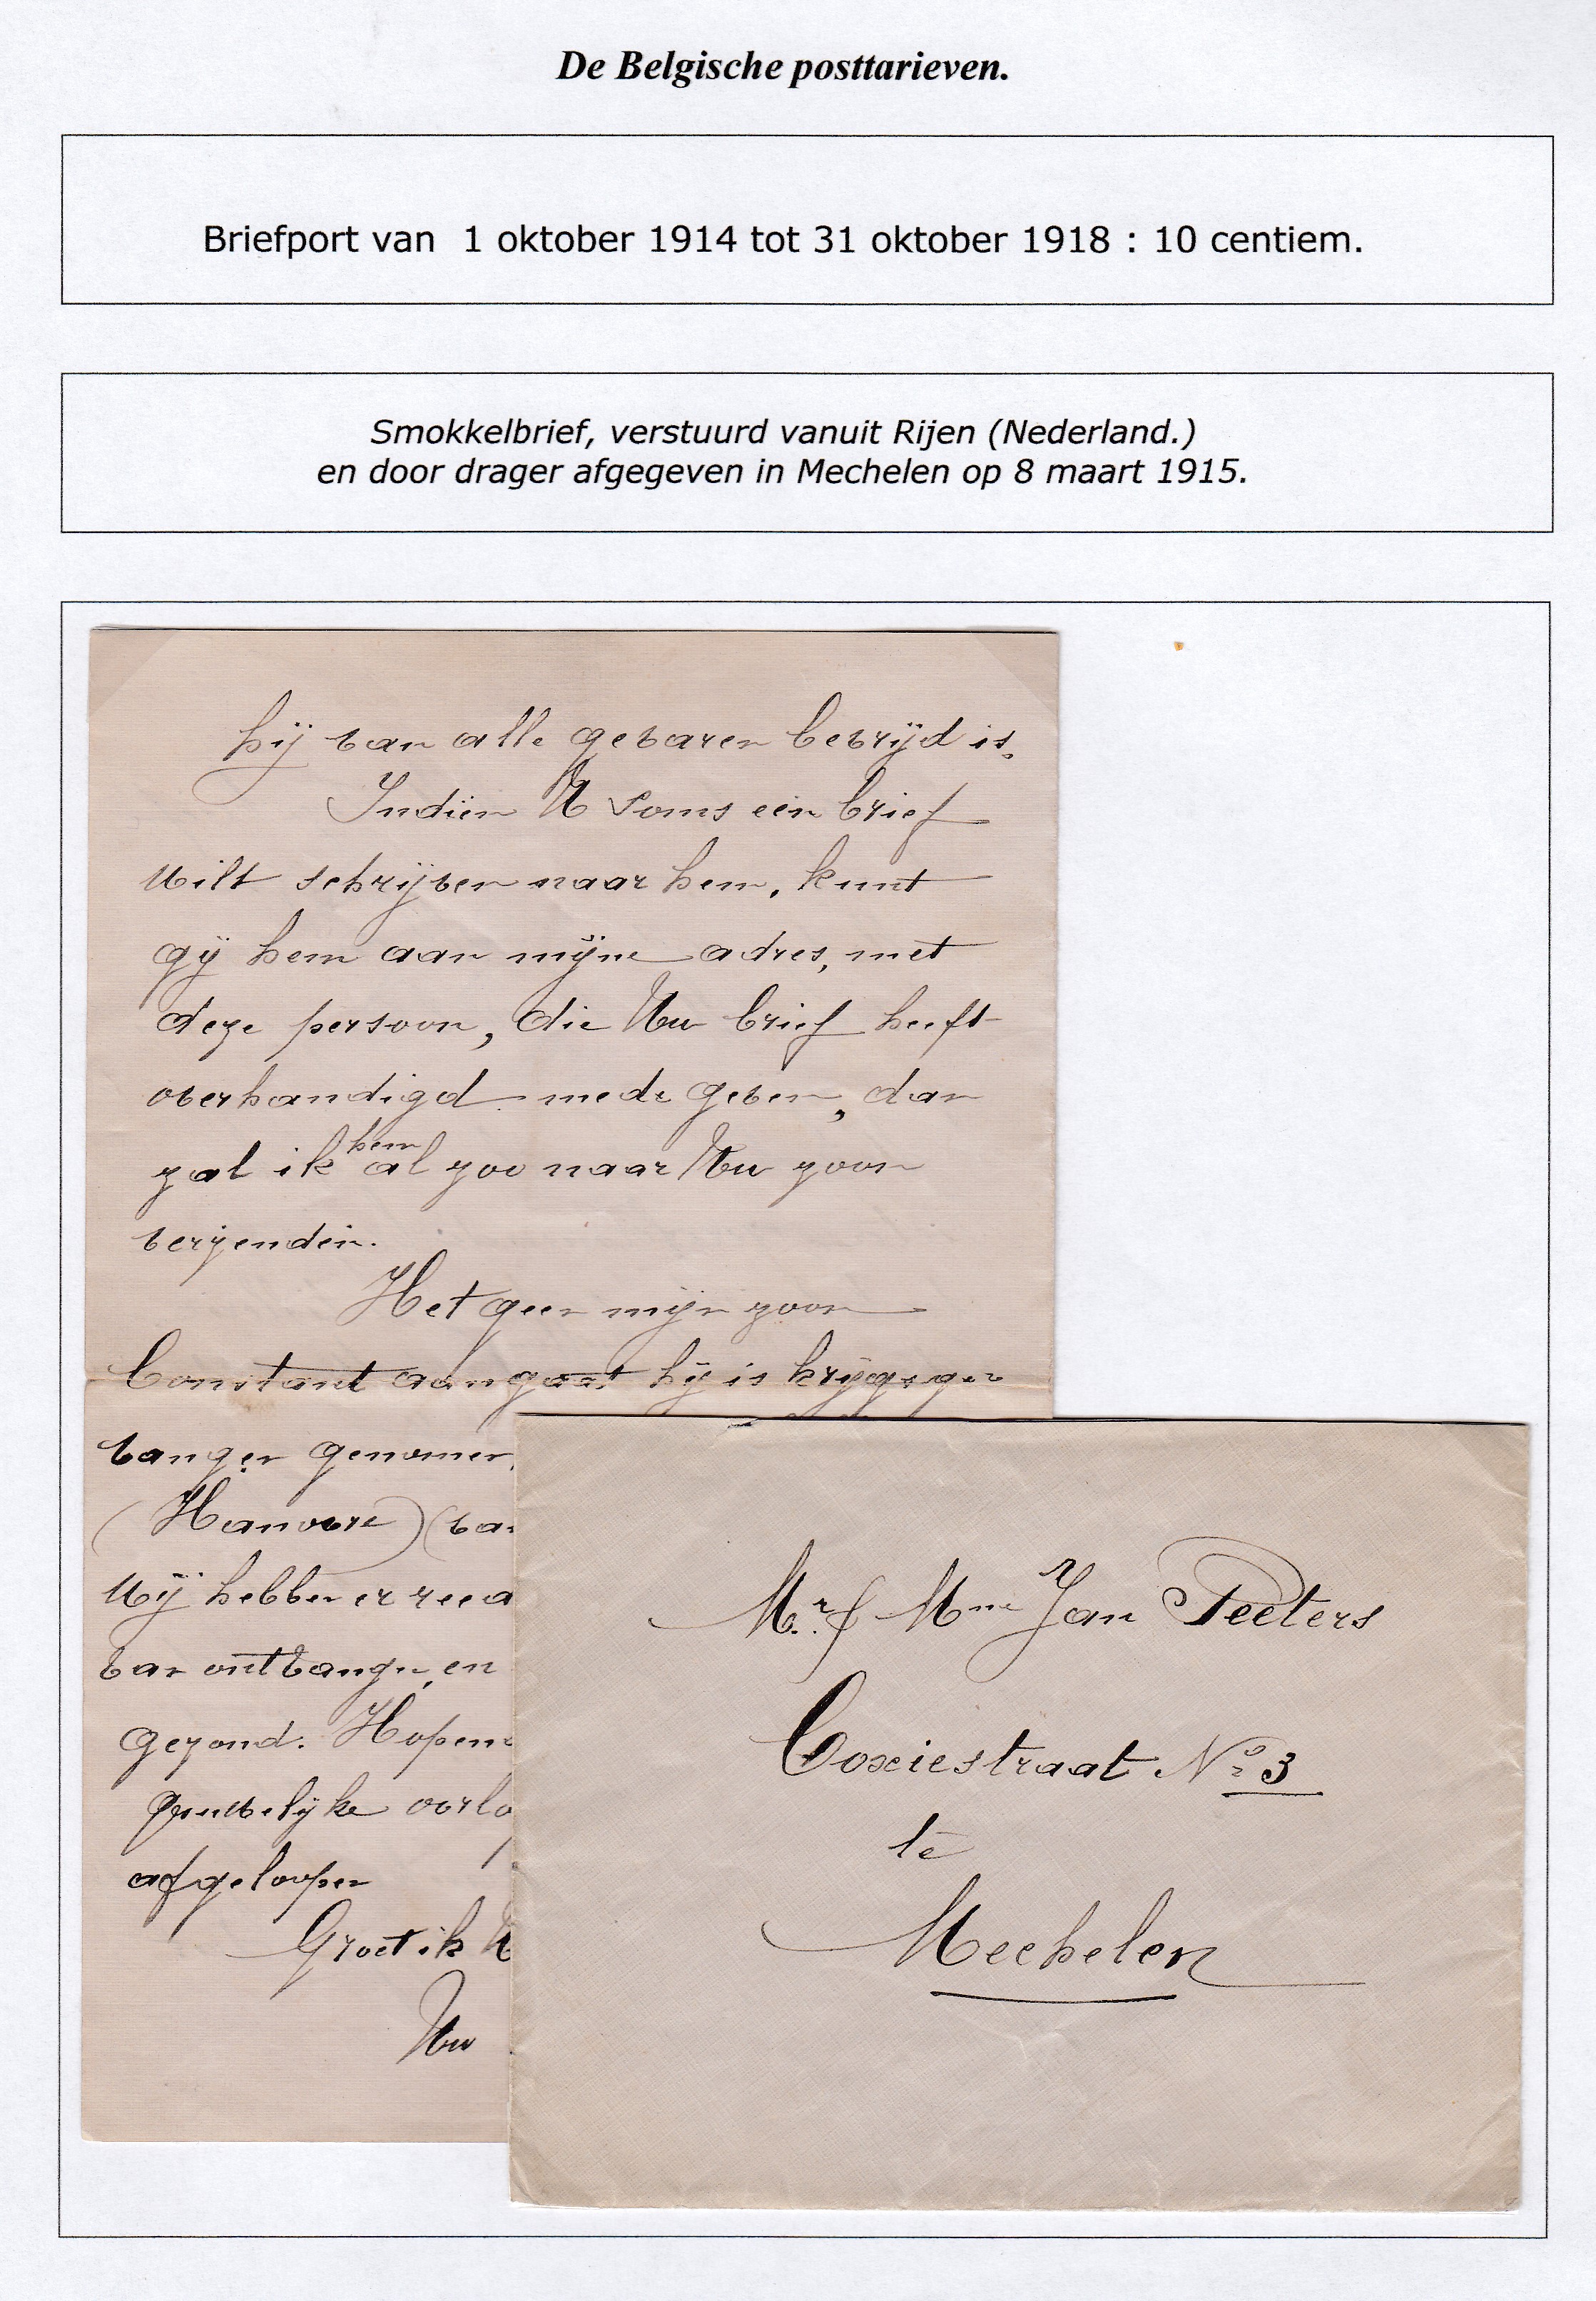 De Belgische posttarieven.
Briefport van 1 oktober 1914 tot 31 oktober 1918 : 10 centiem.
Smokkelbrief, verstuurd vanuit Rijen (Nederland.)
en door drager afgegeven in Mechelen op 8 maart 1915.
hij van alle gevaren bevrijd is.
Indien U soms een brief
wilt schrijven naar hem, kunt
gij hem aan mijne adres, met
deze persoon, die Uw brief heeft
overhandigd mede geven, dan
zal ik hem al zoo naar Uw zoon
verzenden.
Het geen mijn zoon
Constant aangaat hij is krijgsge
vangen genomen,
(Hanovre) (va
Wij hebben er reed
van ontvangen, en
gezond. Hopen
gruwelijke oorlo
afgeloopen
Groet ik U
Uw
Mr & Mme Jan Peeters
Coxiestraat No 3
te
Mechelen